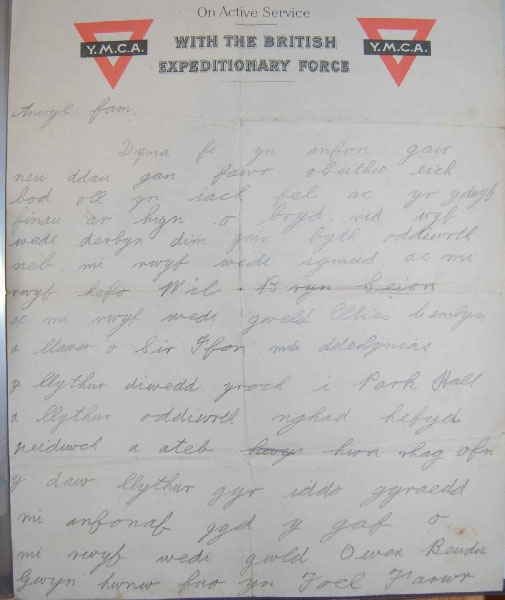 On Active Service
Y.M.C.A.
WITH THE BRITISH
EXPEDITIONARY FORCE
Y.M.C.A.
Anwyl fam.
Dyma fi yn anfon gair
neu ddau gan fawr obeithio eich
bod oll yn iach fel ac yr ydwyf
finau ar hyn o bryd. nid wyf
wedi derbyn dim gair byth oddiwrth
neb. mi rwyf wedi symud ac mi
rwyf hefo Wil. Bryn Seion
ac mi rwyf wedi gweld Ellies
a llawer o Sir Ffon dderbynias
y llythur diwedd yroch i Park Hall
a llythur oddiwrth nghad hefyd
peidiwch a ateb hwn rhag ofn
y daw llythur gyr iddo gyraedd
mi anfonaf gyd y gaf o
mi rwyf wedi gwld Owen
Gwyn hwnw fuo yn Foel Fawr